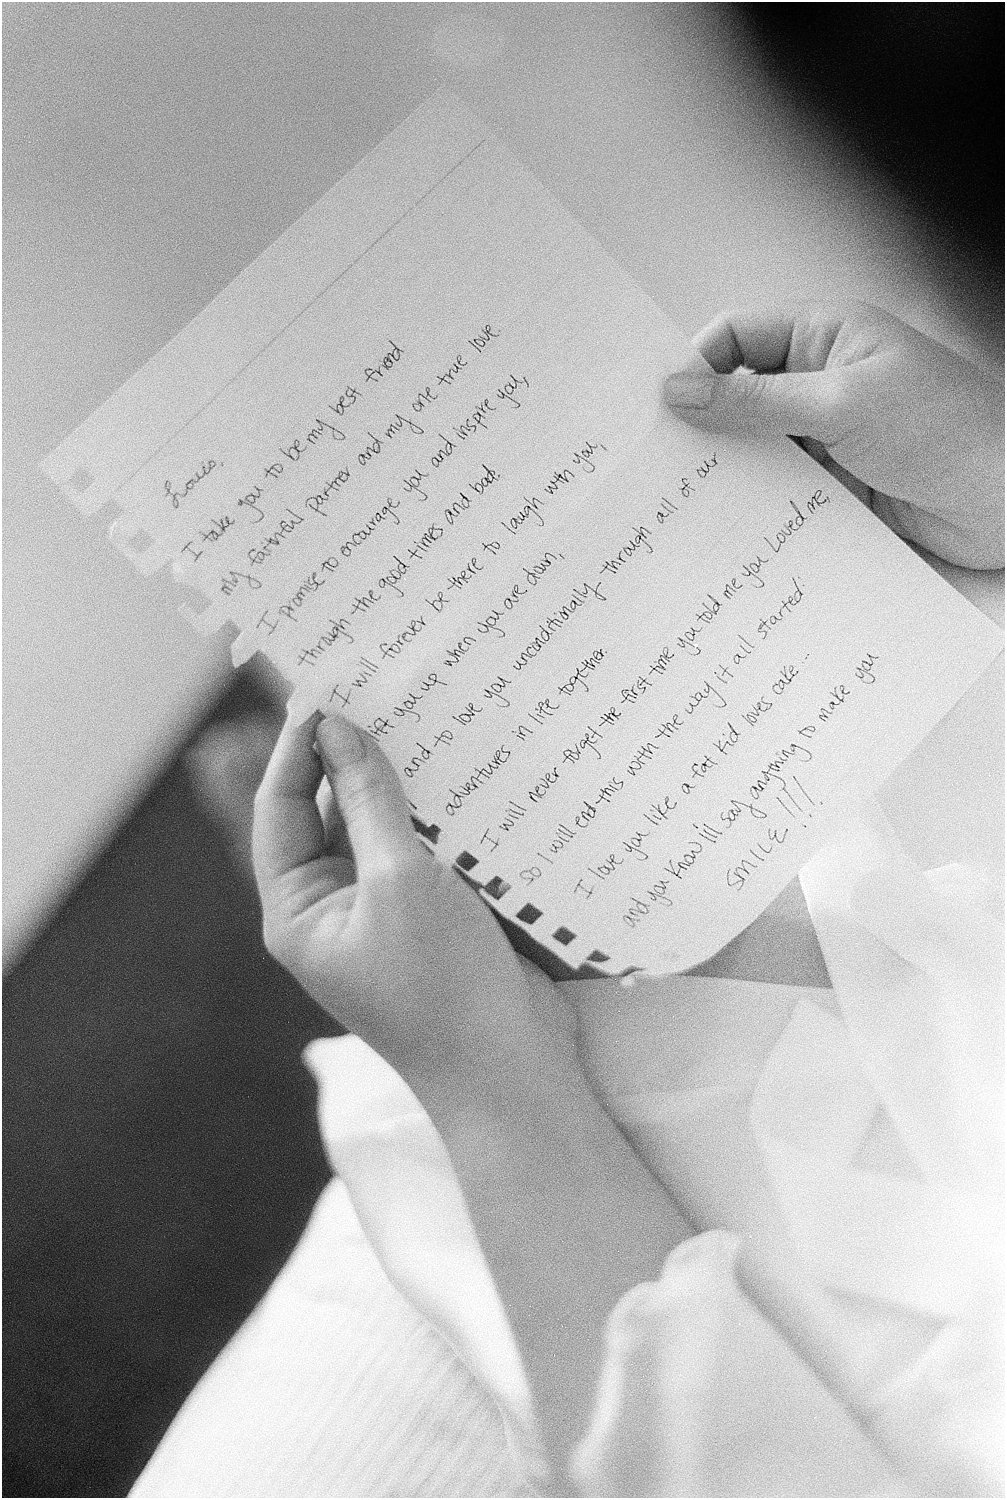 I take you to be my best friend
my faithful partner and my one true love.
I promise to encourage you and inspire you,
through the good times and bad.
I will forever be there to laugh with you,
lift you up when you are down,
and to love you unconditionally through all of our
adventures in life together.
I will never forget the first time you told me you Loved me,
so I will end this with the way it all started:
I love you like a fat kid loves cake...
and you know I'll say anything to make you
SMILE!!!!